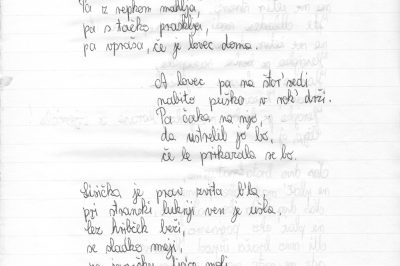 Pa z repkom mahlja,
pa s tačko prasklja,
pa vpraša, če je lovec doma.
A lovec pa na stor' sedi
nabito puško v rok' drži.
Pa čaka na njo,
da ustrelil jo bo,
če le prikazala se bo.
Lisička je prav zvita b'la,
pri stranski luknji ven je ušla.
čez hribček beži,
se sladko smeji,